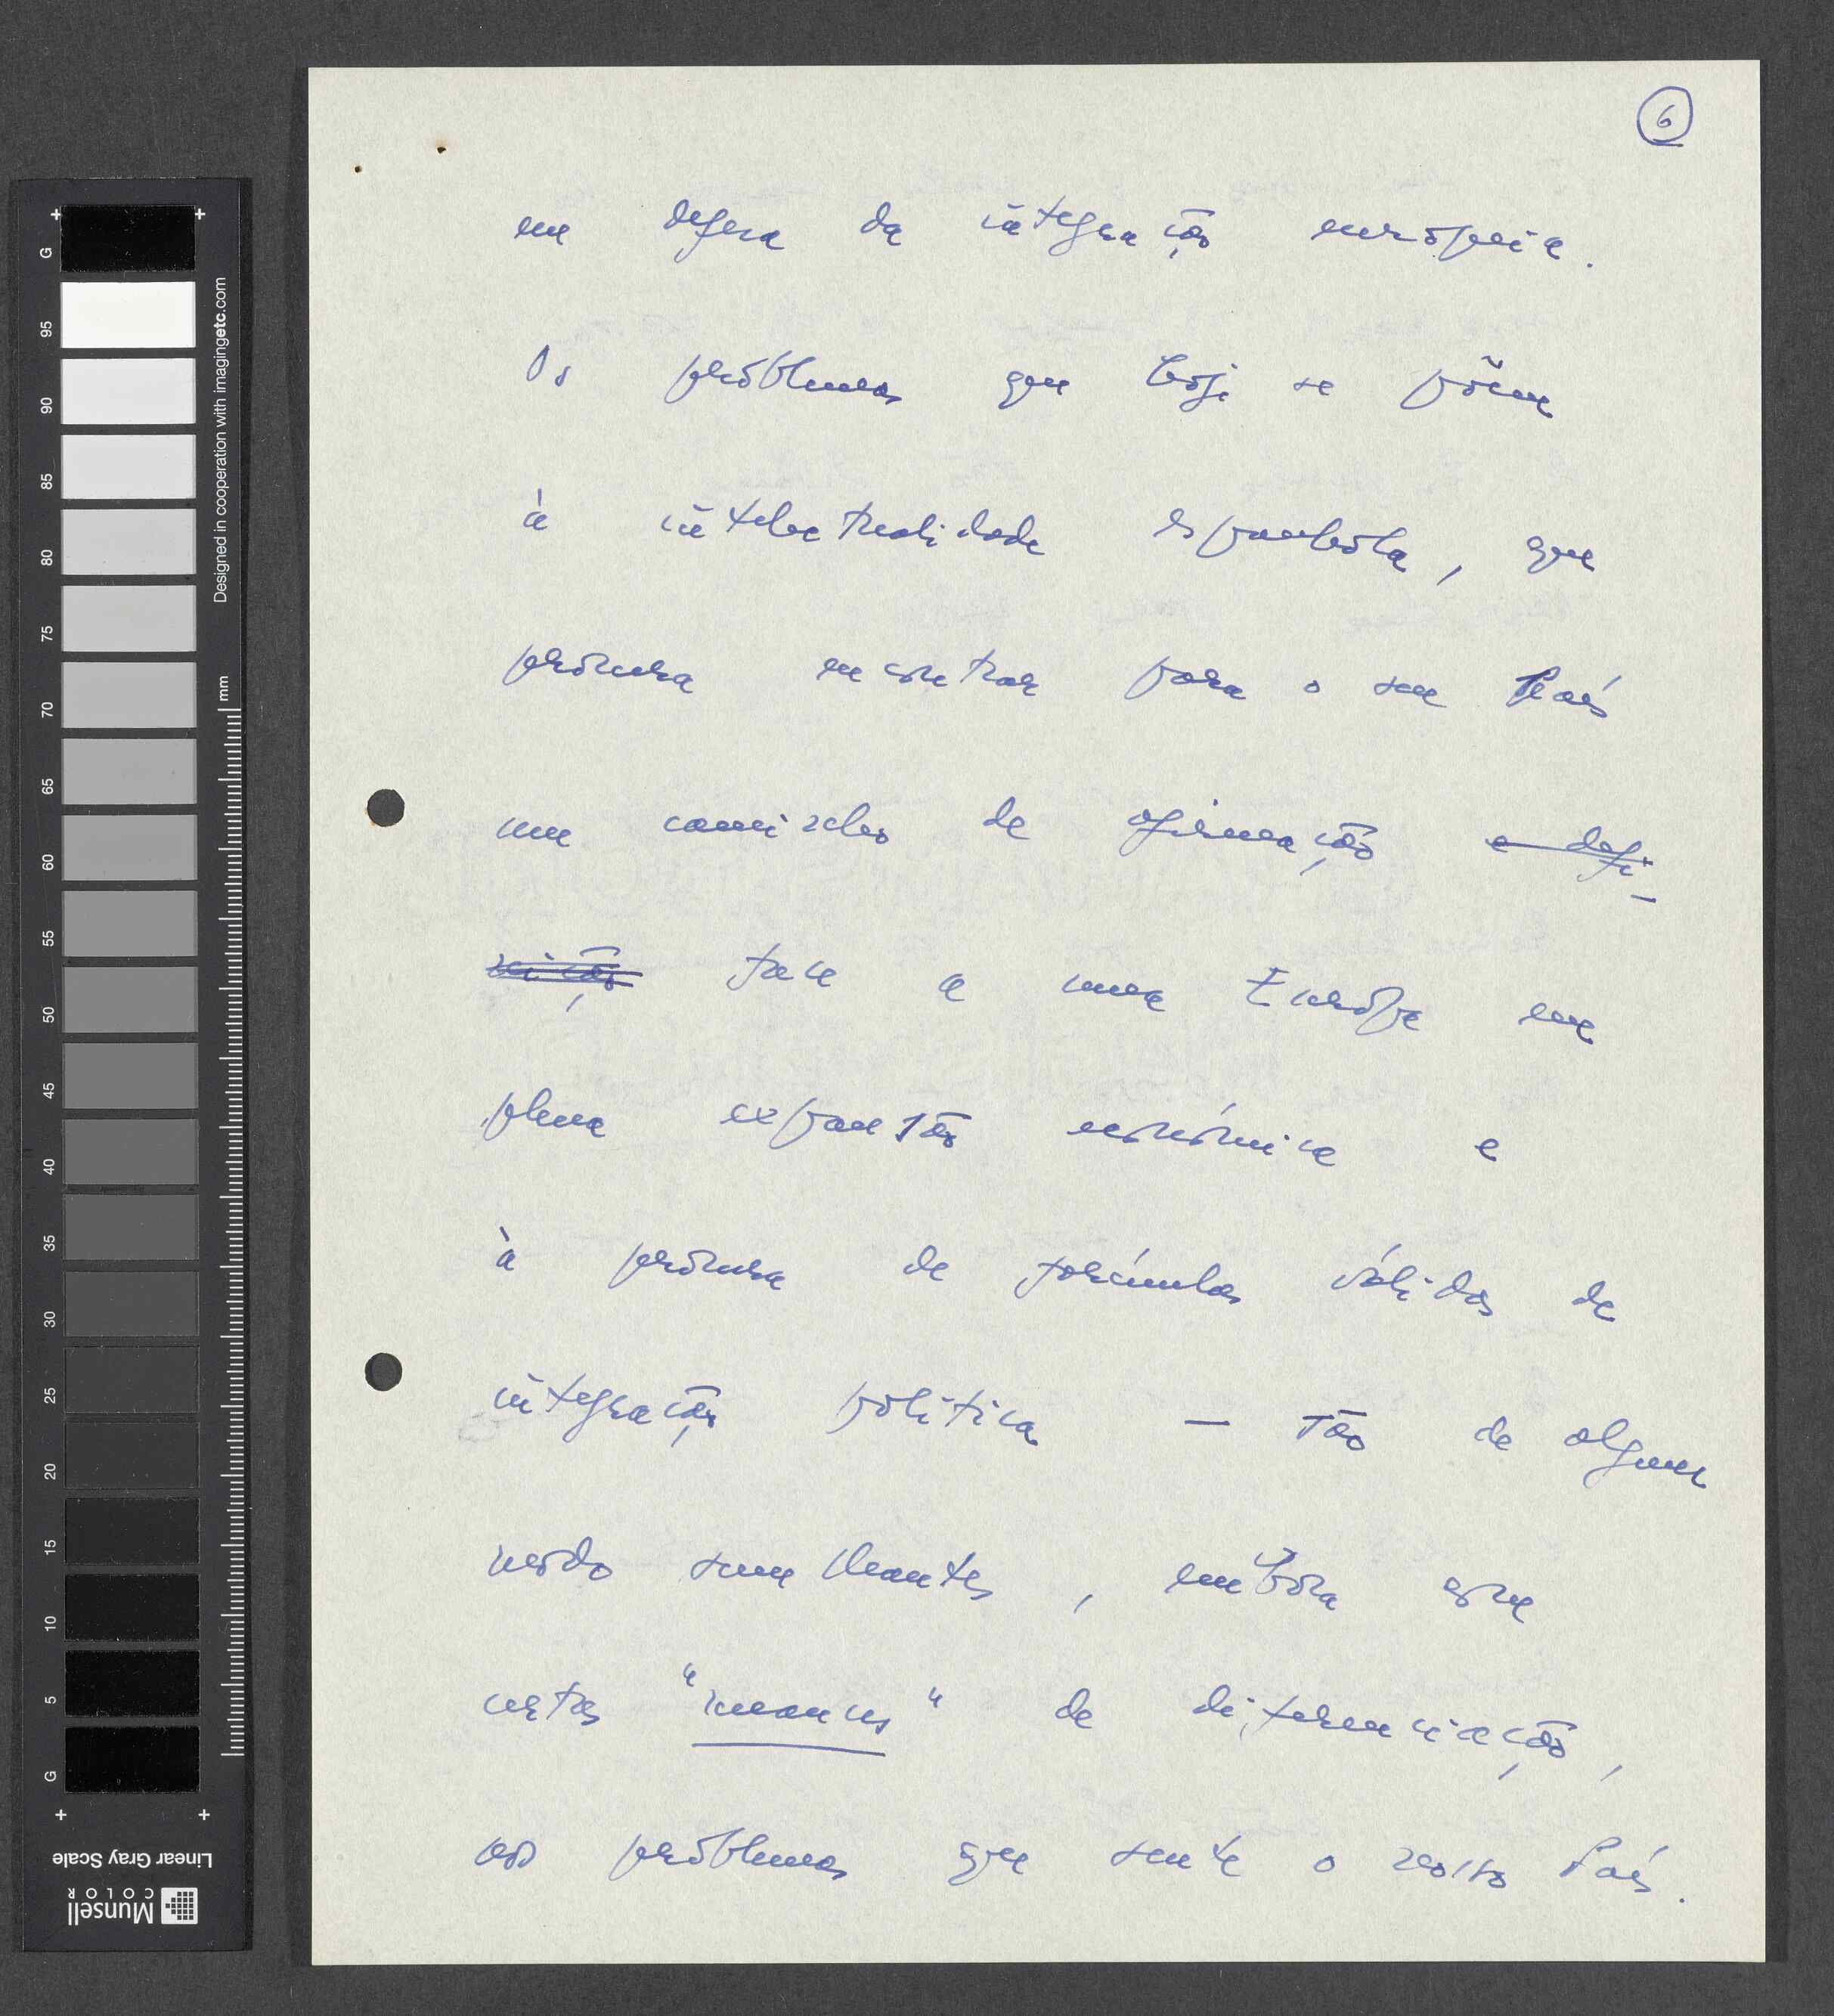 6
em defesa da integração europeia.
Os problemas que hoje se põem
à intelectualidade espanhola, que
procura encontrar para o seu País
um caminho de afirmação e defi-
nição face a uma Europa em
plena expansão económica e
à procura de fórmulas válidas de
integração política — são de algum
modo semelhantes, embora com
certas "nuances" de diferenciação,
aos problemas que sente o nosso País.
Designed in cooperation with imagingetc.com
mm
G
95
90
85
80
75
70
65
60
55
50
45
40
35
30
25
20
15
10
5
G
Linear Gray Scale
Munsell
COLOR